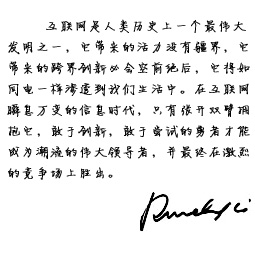 互联网是人类历史上一个最伟大
发明之一，它带来的活力没有疆界，它
带来的跨界创新必会空前绝后，它将如
同电一样渗透到我们生活中。在互联网
瞬息万变的信息时代，只有张开双臂拥
抱它，敢于创新，敢于尝试的勇者才能
成为潮流的伟大领导者，并最终在激烈
的竞争场上胜出。